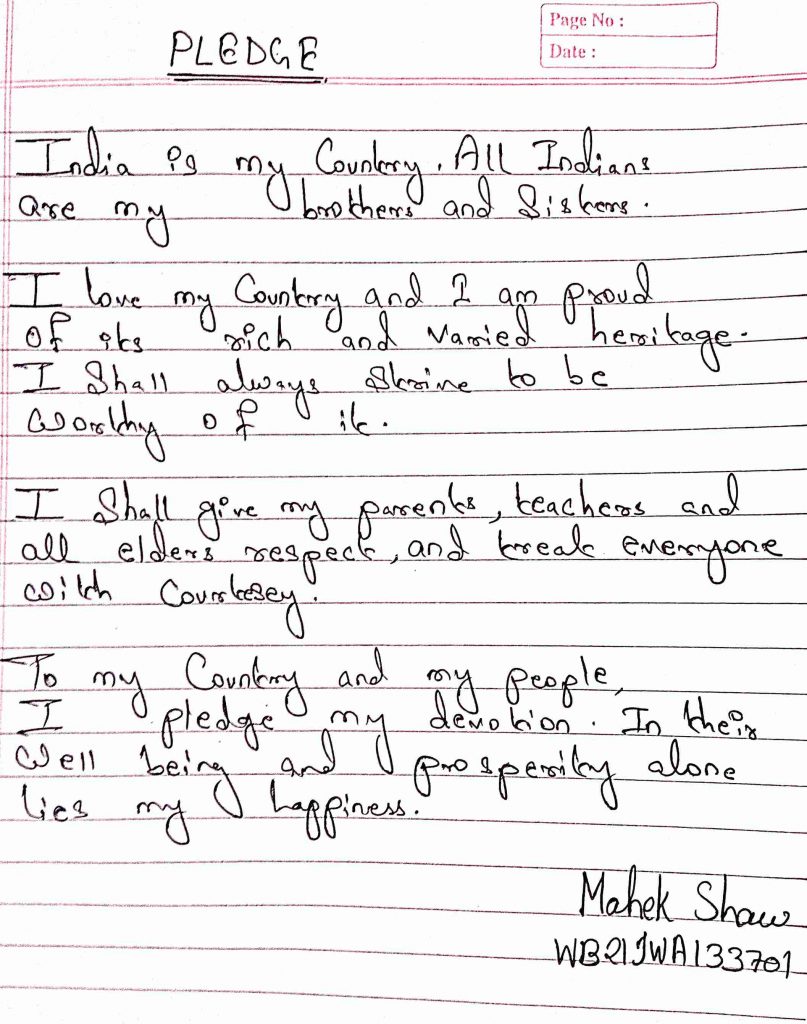 Page No :
Date :
PLEDGE
India is my Country. All Indians
are my brothers and Sisters.
I love my Country and I am proud
of its rich and varried heritage.
I Shall always Strive to be
worthy of it.
I Shall give my parents, teachers and
all elders respect, and treat everyone
with Courtesey.
To my Country and my people,
I pledge my devotion. In their
well being and prosperity alone
lies my happiness.
Mahek Shaw
WB21JWA133701